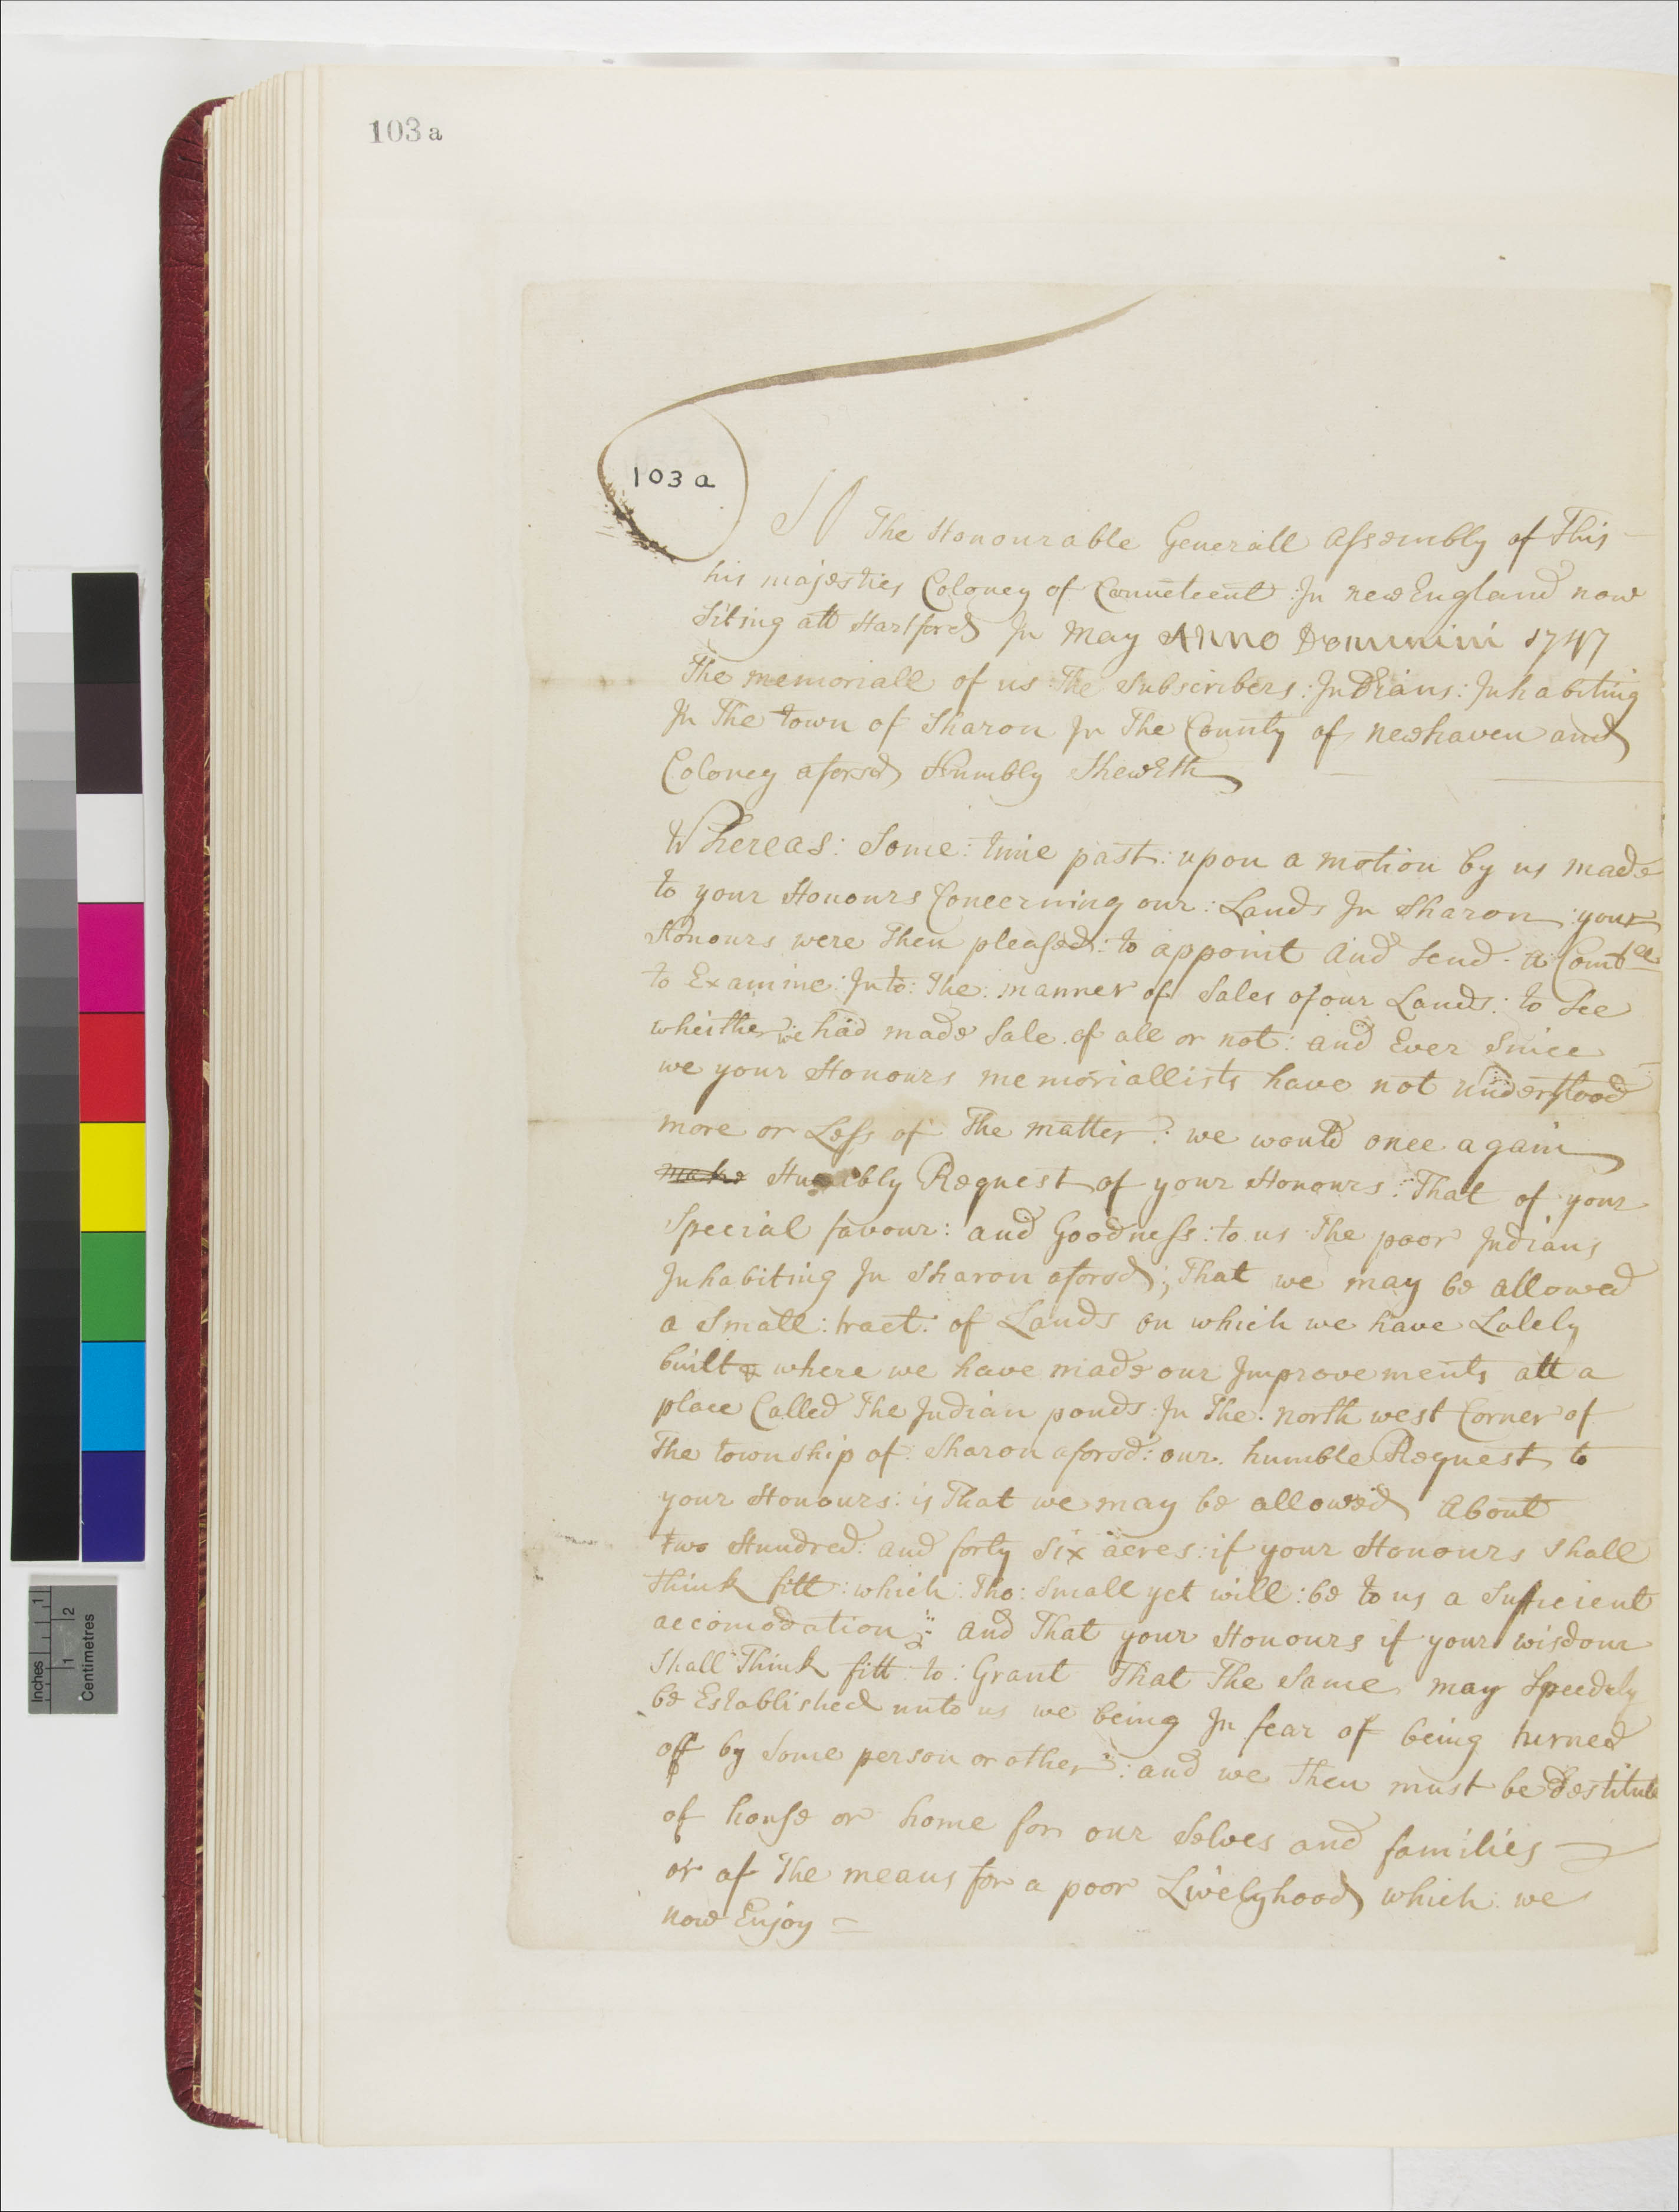 103 a
103 a
To The Honourable Generall Assembly of This
his majesties Coloney of Connetecut : In new England now
Siting att Hartford In May Anno Dommini 1747
The memoriall of us The Subscribers : Indians : Inhabiting
In The town of Sharon In The County of newhaven and
Coloney aforsd Humbly ShewEth
Whereas : Some : time past : upon a motion by us made
to your Honours Concerning our : Lands In Sharon : your
Honours were Then pleased : to appoint and Send a Comtee
to Examine : Into : The : manner of Sales of our Lands : to See
wheither we had made Sale of all or not : and Ever Since
we your Honours memoriallists have not understood
more or Less of The matter : we would once again
make Humbly Request of your Honours : That of your
Special favour : and Goodness : to us The poor Indians
Inhabiting In Sharon aforsd ; That we may be allowed
a Small : tract : of Lands on which we have Lately
built & where we have made our Improvements att a
place Called The Indian ponds : In The north west Corner of
The township of Sharon aforsd : our humble Request to
your Honours : is That we may be allowed About
two Hundred and forty Six acres : if your Honours Shall
think fitt : which : Tho : Small yet will : be to us a Sufficient
accomodation : and That your Honours if your wisdom
Shall Think fitt to : Grant That The Same may Speedely
be Established unto us we being In fear of being turned
off by Some person or other : and we Then must be Destitute
of house or home for our Selves and families
or of The means for a poor Livelyhood which we
now Enjoy =
Inches
1
1
2
Centimetres